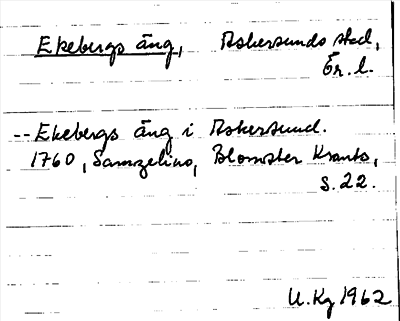 Ekebergs äng, Askersunds stad,
Ör. l.
-- Ekebergs äng i Askersund.
1760, Samzelius, Blomster Krants,
S. 22.
U. Kg 1962